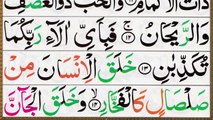 ذَاتُ الْاَكْمَامِ ۝ وَالْحَبُّ ذُو الْعَصْفِ
وَالرَّيْحَانُ ۝١٢ۚ فَبِاَيِّ اٰلَآءِ رَبِّكُمَا
تُكَذِّبٰنِ ۝١٣ خَلَقَ الْاِنْسَانَ مِنْ
صَلْصَالٍ كَالْفَخَّارِ ۝١٤ۙ وَخَلَقَ الْجَآنَّ